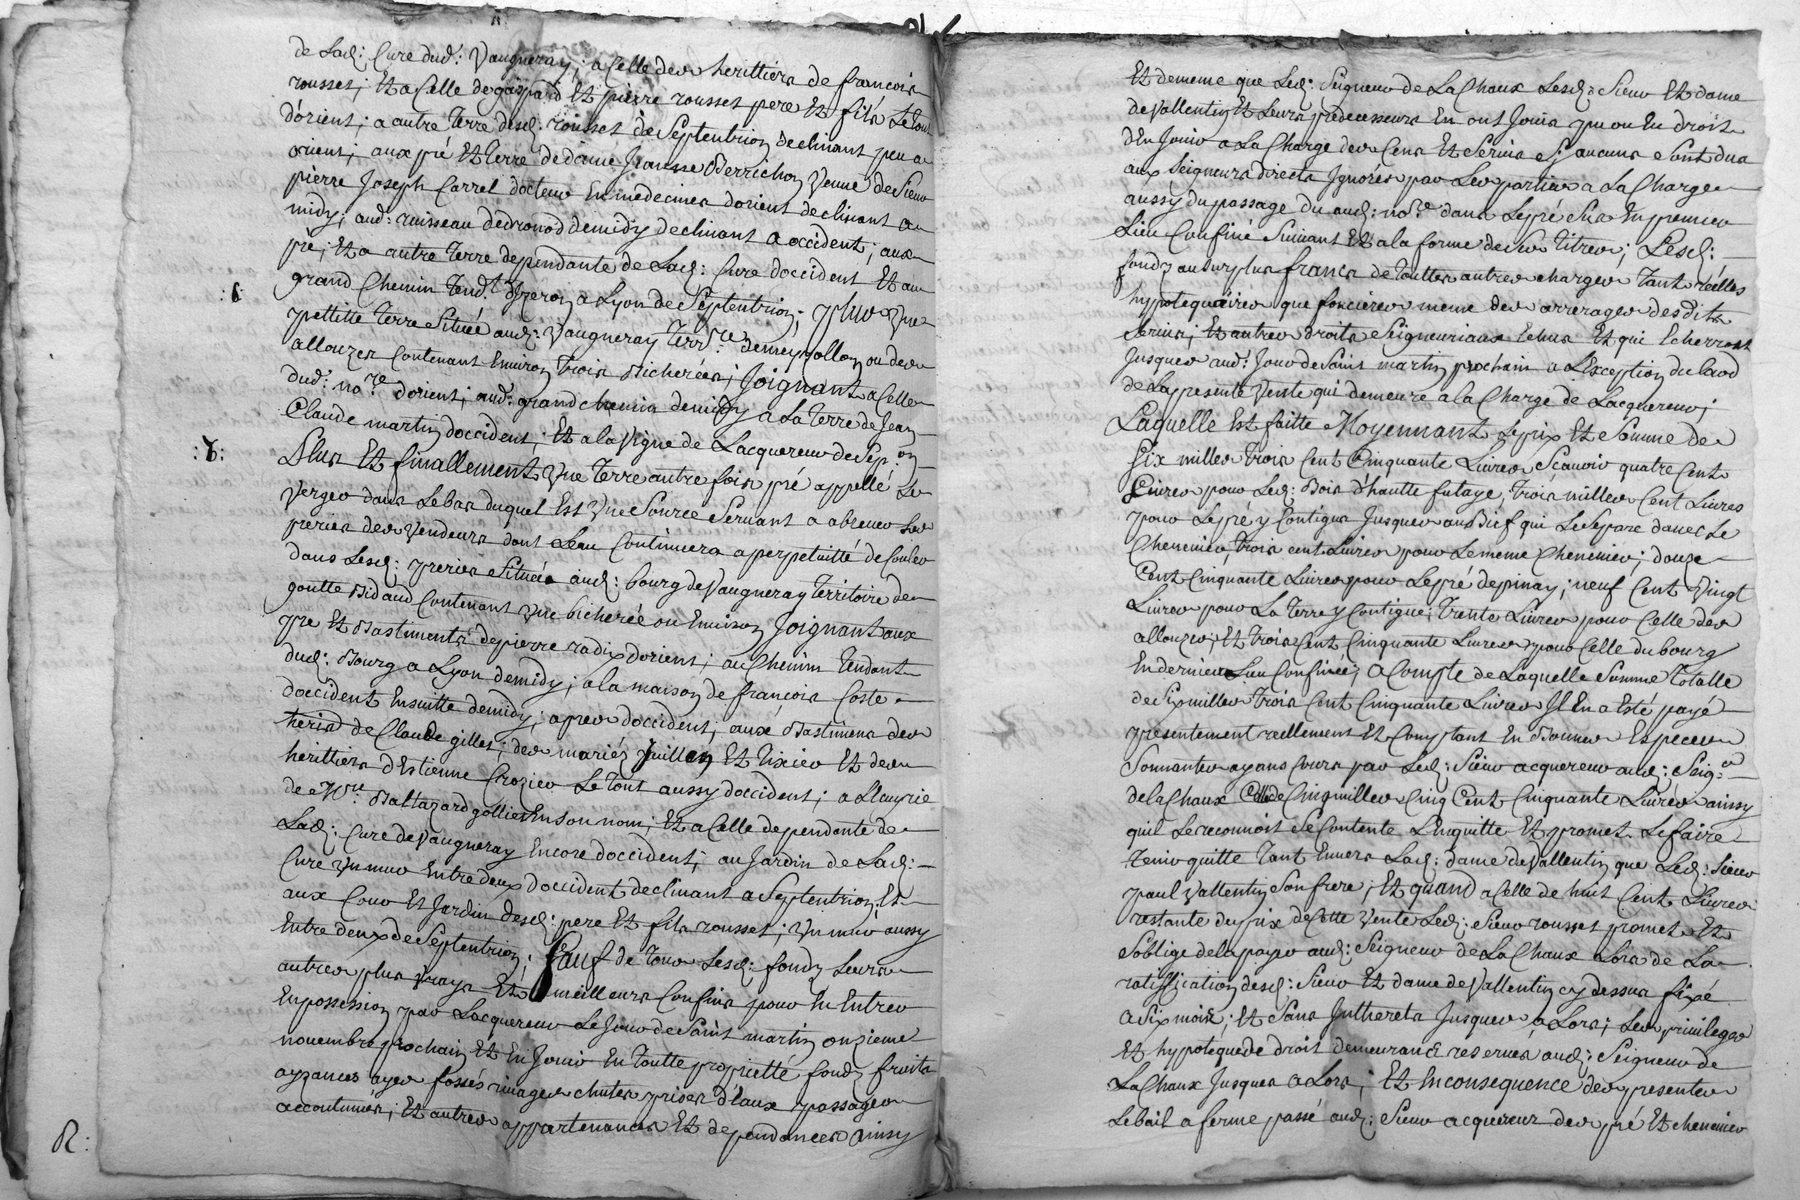 de Lad: Cure dud: Vaugneray; a Celle des herittiers de françois
rousset; Et a Celle de gaspard Et pierre rousset pere Et fils Le tout
d'orient; a autre Terre desd: rousset de Septentrion declinant peu a
orient; aux pré Et terre de dame Jeanne Berrichon Veuve de Sieur
pierre Joseph Carrel docteur En medecines d'orient declinant a
midy; aud: ruisseau de dronod de midy declinant a occident; aux
pré; Et a autre terre dependante de Lad: Cure d'occident Et au
:6: grand Chemin tend.t d'yzeron a Lyon de Septentrion; plus Une
pettitte Terre Située aud: Vaugneray Terr.re de meypollon ou des
allouzes Contenant Environ trois Bicherées; Joignant a Celle
dud: no.re d'orient; aud: grand chemin de midy a La terre de Jean
Claude martin d'occident; Et a la Vigne de L'acquereur de Sep.on
:7: Plus Et finallement Une Terre autre fois pré appellé Le
Verger dans Le bas duquel Est Une Source Servant a abreuver Les
preries des Vendeurs dont L'eau Continuera a perpetuitté de Couler
dans Lesd: preries Située aud: bourg de Vaugneray Territoire de
goutte Bidaud Contenant Une bicherée ou Environ Joignant aux
pré Et Bastiments de pierre radix d'orient; au Chemin tendant
dud: Bourg a Lyon de midy; a la maison de françois Coste
d'occident Ensuitte de midy; apres d'occident; aux Bastimens des
heritiers de Claude gilles; des mariés Juillen Et tixier Et des
herittiers d'Estienne Crozier Le tout aussy d'occident; a L'ecurie
de M.re Baltazard gollier En son nom; Et a Celle dependante de
Lad: Cure de Vaugneray Encore d'occident; au Jardin de Lad:
Cure Un mur Entre deux d'occident declinant a Septentrion; Et
aux Cour Et Jardin desd: pere Et fils rousset; Un mur aussy
Entre deux de Septentrion. Sauf de Tous Lesd: fondz Leurs
autres plus Vrays Et meilleurs Confins pour En Entrer
En possession par L'acquereur Le Jour de Saint martin onzieme
novembre prochain Et En Jouir En toutte proprietté fondz fruits
ayzances ayes fossés rivages chutes prises d'eaux passages
accoutumés; Et autres appartenances Et dependances ainsy
R:
Et de meme que Led: Seigneur de La Chaux Lesd: Sieur Et dame
de Vallentin Et Leurs predecesseurs En ont Jouis pu ou Eu droit
d'En Jouir a La Charge des Cens Et Servis Sy aucuns Sont dus
aux Seigneurs directs Ignorés par Les parties a La Charge
aussy du passage du aud: no.re dans Le pré Sis En premier
Lieu Confiné Suivant Et a la forme de Ses titres; Lesd:
fondz au Surplus francs de Touttes autres charges tant réelles
hypotequaires que foncieres meme des arrerages desdits
Servis; Et autres droits Seigneuriaux Echus Et qui Echerront
Jusques aud: Jour de Saint martin prochain a L'exception du Laod
de La presente Vente qui demeure a la Charge de L'acquereur;
Laquelle Est faitte Moyennant Le prix Et Somme de
Six milles trois Cent Cinquante Livres Scavoir quatre Cent
Livres pour Led: Bois d'hautte futaye, trois milles Cent Livres
pour Le pré y Contigus Jusques au Bief qui Le Separe d'avec Le
Chenevier, trois cent Livres pour Le meme Chenevier; douze
Cent Cinquante Livres pour Le pré depinay; neuf Cent Vingt
Livres pour La terre y Contigue; Trente Livres pour Celle des
allouzes; Et trois Cent Cinquante Livres pour Celle du bourg
En dernier Lieu Confinée; a Compte de Laquelle Somme Totalle
de Six milles trois Cent Cinquante Livres Il En a Esté payé
presentement reellement Et Comptant En Bonnes Especes
Sonnantes ayans Cours par Led: Sieur acquereur aud: Seig.r
de La Chaux Celle de Cinq milles Cinq Cent Cinquante Livres ainsy
quil Le reconnoit Se Contente L'en quitte Et promet Le faire
tenir quitte tant Envers Lad: dame de Vallentin que Led: Sieur
paul Vallentin Son frere; Et quand a Celle de huit Cent Livres
restante du prix de Cette Vente Led: Sieur rousset promet Et
S'oblige de la payer aud: Seigneur de La Chaux Lors de La
ratiffication desd: Sieur Et dame de Vallentin cy dessus fixé
a Six mois; Et Sans Inthерets Jusques a Lors; Les privileges
Et hypoteque de droit demeurans reservés aud: Seigneur de
La Chaux Jusques a Lors; Et En consequence des presentes
Le bail a ferme passé aud: Sieur acquereur des pré Et chenevier